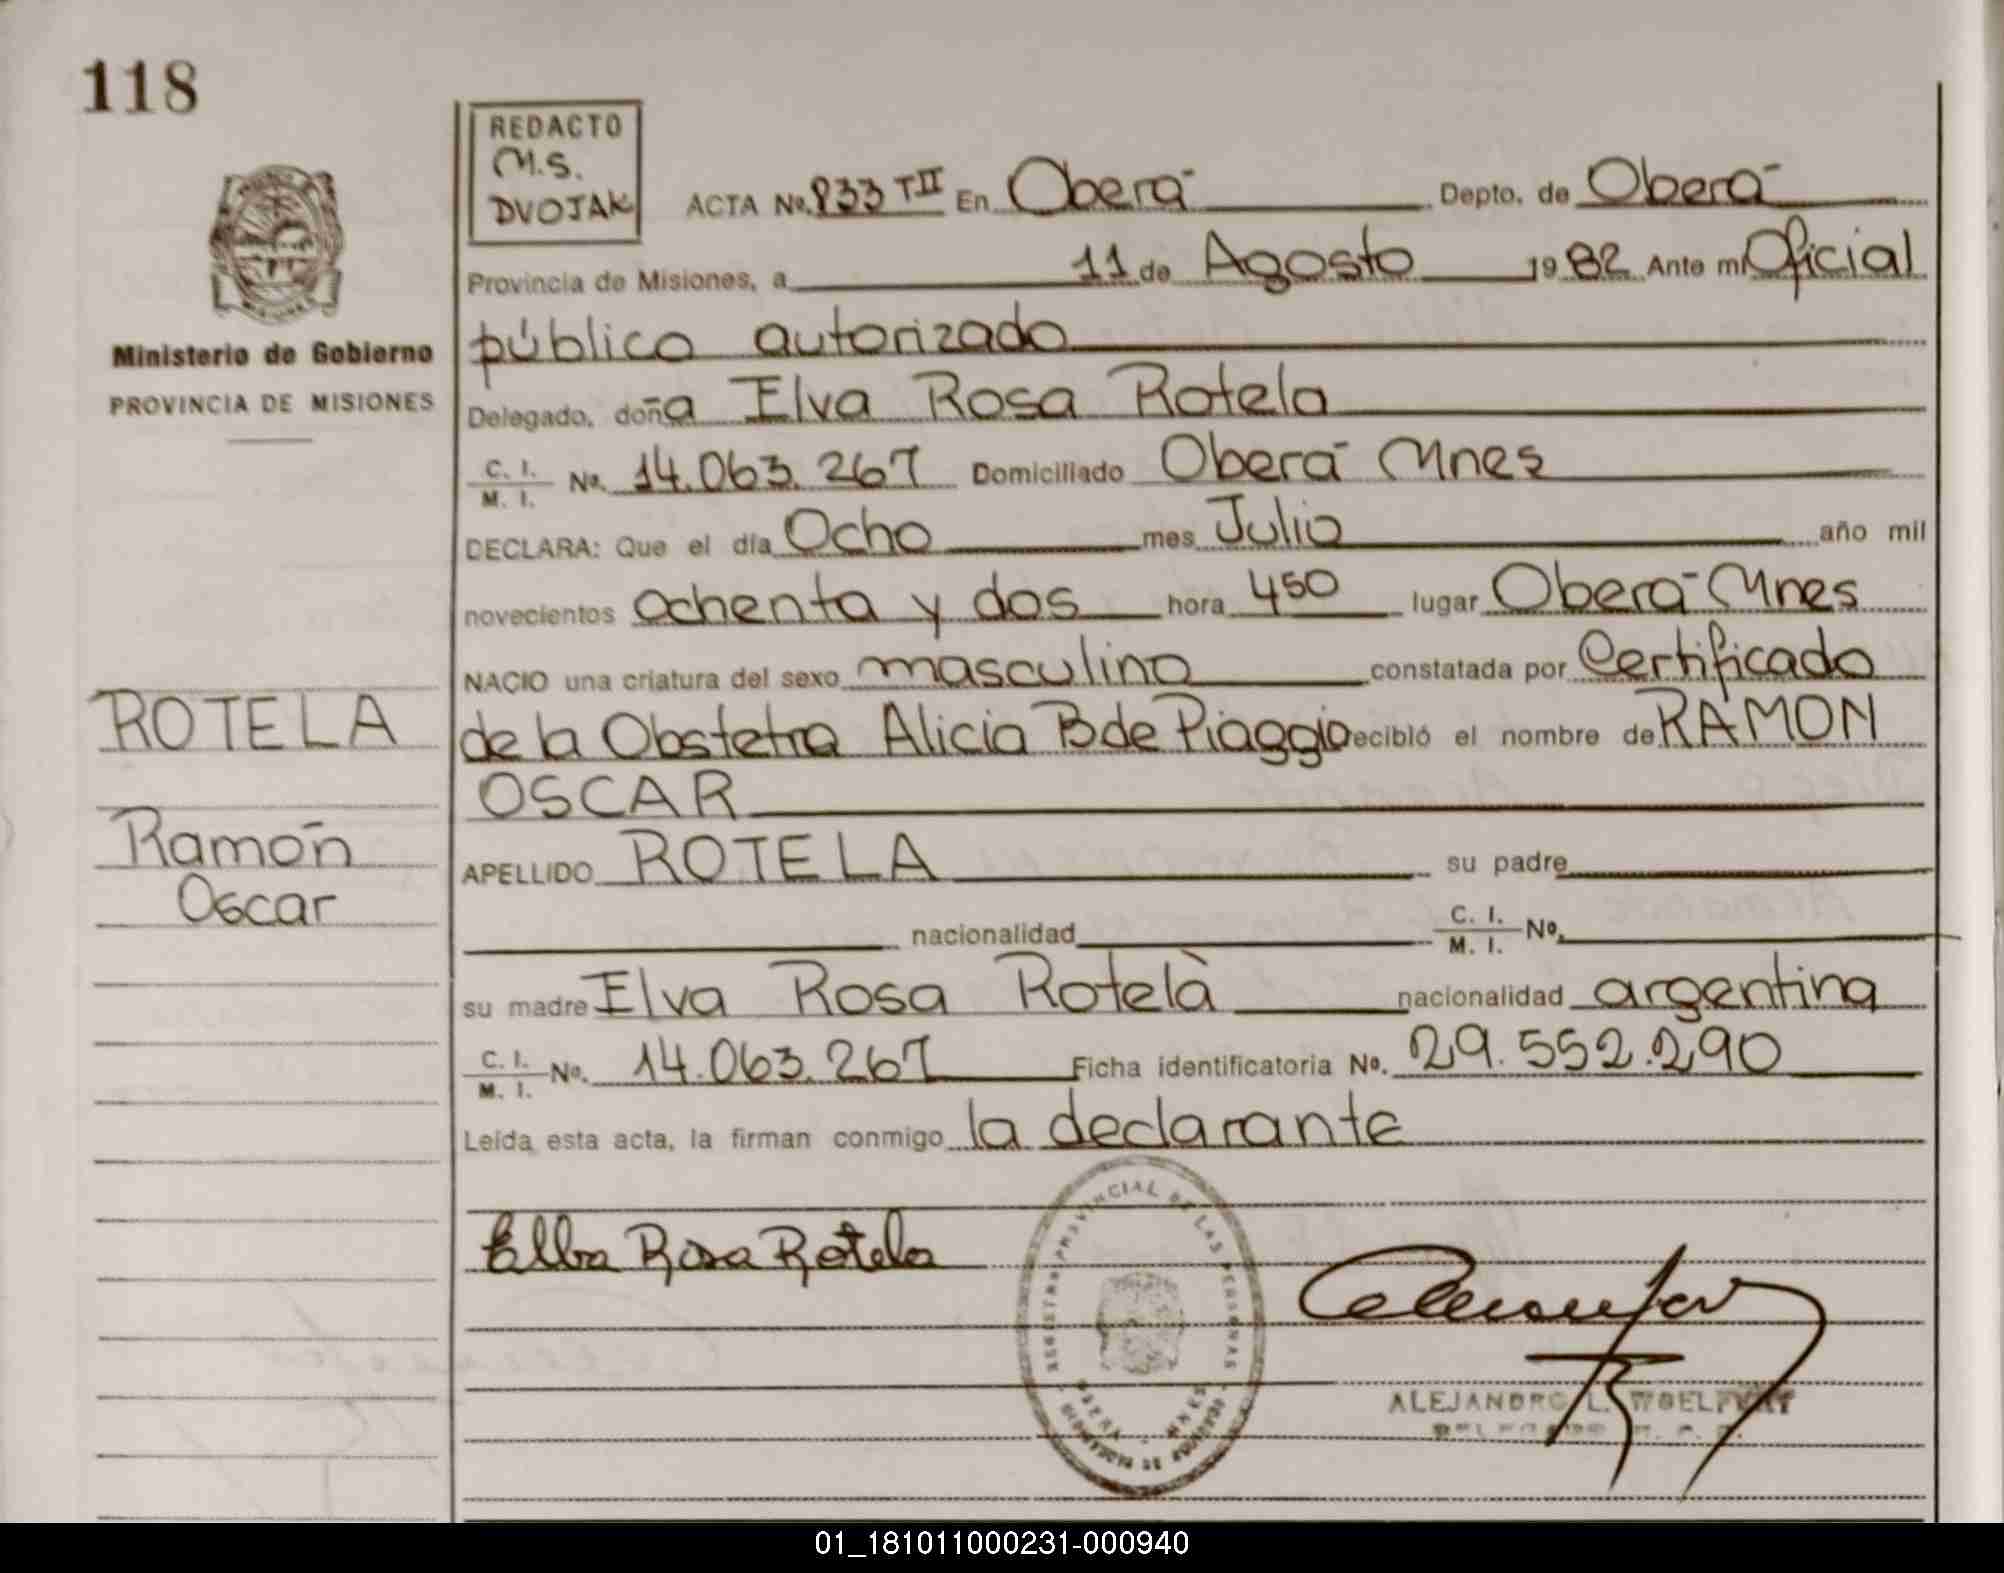 118
REDACTO
M.S.
DVOJAK
ACTA No. 833 TII En Oberá Depto. de Oberá
Provincia de Misiones, a 11 de Agosto 1982 Ante mí Oficial
Ministerio de Gobierno
PROVINCIA DE MISIONES
público autorizado
Delegado, doña Elva Rosa Rotela
C. I.
M. I. No. 14.063.267 Domiciliado Oberá Mnes
DECLARA: Que el día Ocho mes Julio año mil
novecientos ochenta y dos hora 450 lugar Oberá-Mnes
NACIO una criatura del sexo masculino constatada por Certificado
de la Obstetra Alicia B de Piaggio recibió el nombre de RAMON
OSCAR
ROTELA
Ramón
Oscar
APELLIDO ROTELA su padre
nacionalidad C. I.
M. I. No.
su madre Elva Rosa Rotela nacionalidad argentina
C. I.
M. I. No. 14.063.267 Ficha identificatoria No. 29.552.290
Leída esta acta, la firman conmigo la declarante
Elba Rosa Rotela
REGISTRO PROVINCIAL DE LAS PERSONAS
ALEJANDRO L.
01_181011000231-000940